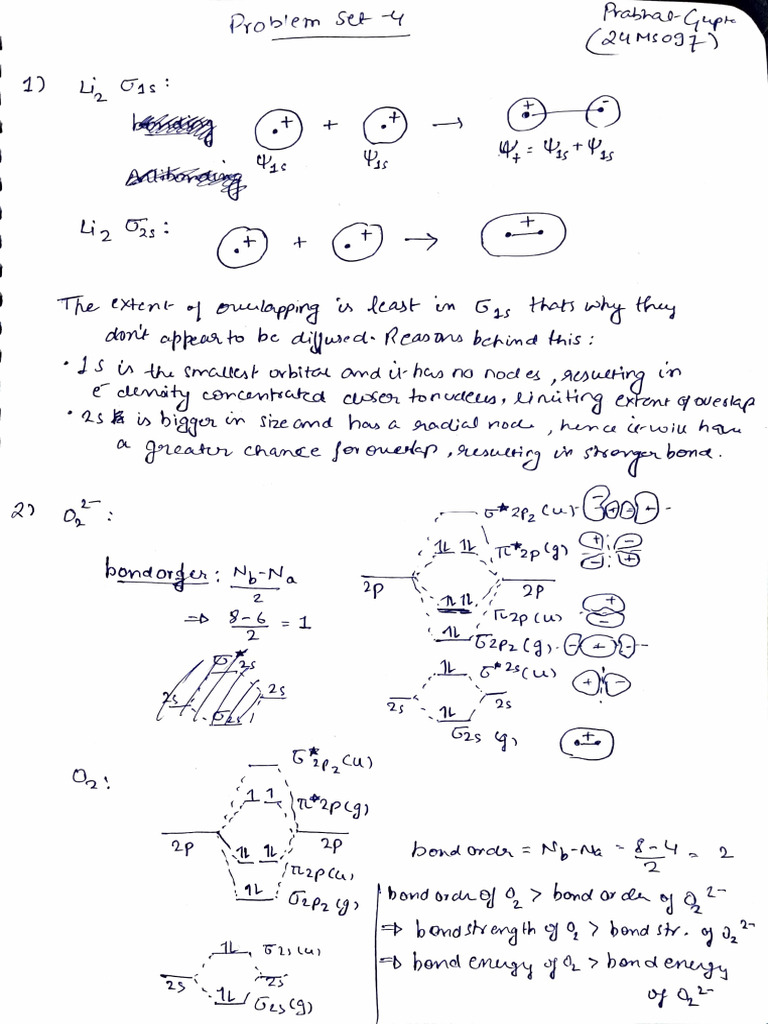 Problem Set -4
Prabhat Gupta
(24MS097)
1) Li₂ σ1s:
+ + + → + -
ψ1s ψ1s ψ₊ = ψ1s + ψ1s
Li₂ σ2s: + + + → +
The extent of overlapping is least in σ1s thats why they
don't appear to be diffused. Reasons behind this:
• 1s is the smallest orbital and it has no nodes, resulting in
e⁻ density concentrated closer to nucleus, limiting extent of overlap
• 2s is bigger in size and has a radial node, hence it will have
a greater chance for overlap, resulting in stronger bond.
2) O₂²⁻:
σ*2pz(u)
π*2p(g)
2p 2p
π2p(u)
σ2pz(g)
σ*2s(u)
2s 2s
σ2s(g)
bond order: Nb-Na
2
⇒ 8-6 = 1
2
O₂:
σ*2pz(u)
π*2p(g)
2p 2p
π2p(u)
σ2pz(g)
σ2s(u)
2s 2s
σ2s(g)
bond order = Nb-Na = 8-4 = 2
2
bond order of O₂ > bond order of O₂²⁻
⇒ bond strength of O₂ > bond str. of O₂²⁻
⇒ bond energy of O₂ > bond energy
of O₂²⁻